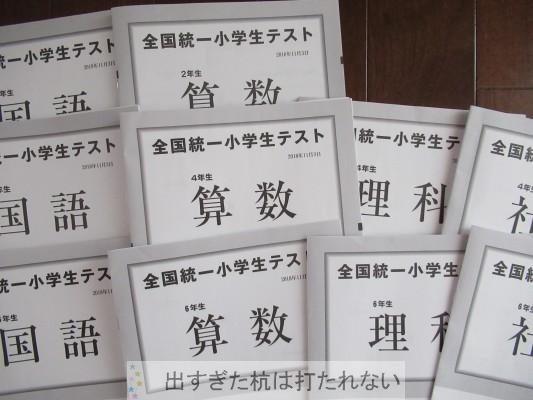 小学生テスト
2018年11月3日
国語
全国統一小学生テスト
2018年11月3日
2年生
算数
小学生テスト
2018年11月3日
年生
国語
全国統一小学生テスト
2018年11月3日
4年生
算数
小学生テスト
2018年11月3日
理科
全国統一
4年
社
一小学生テスト
2018年11月
年生
国語
全国統一小学生テスト
2018年11月3日
6年生
算数
全国統一小学
6年生
理科
全国統
6年生
社
出すぎた杭は打たれない